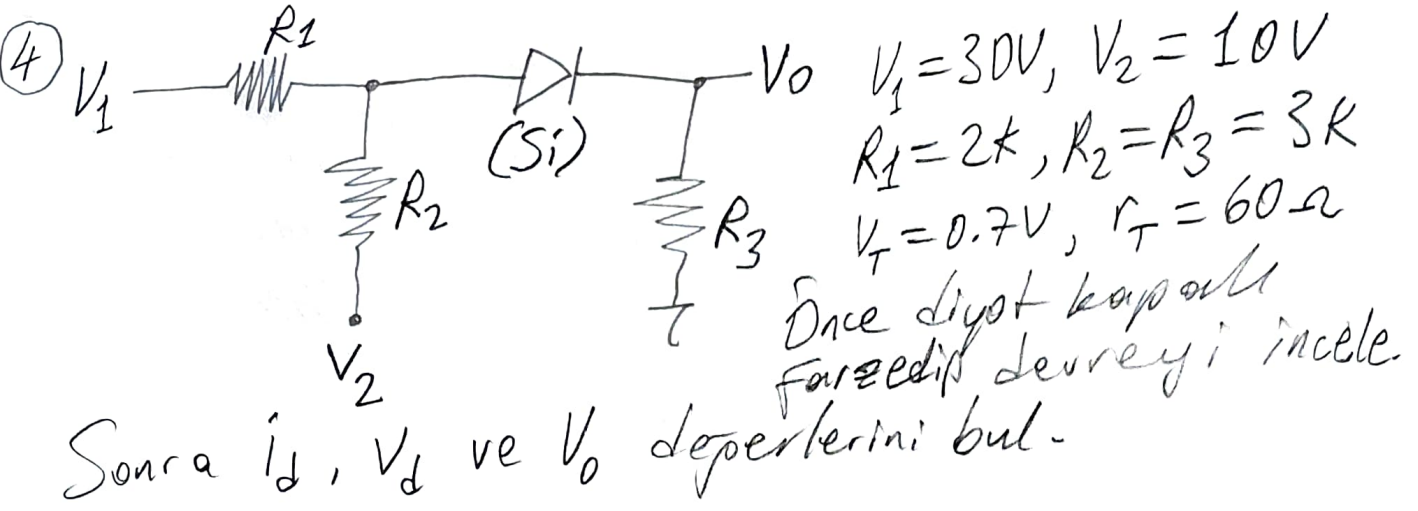 ④
R1
V1
Vo
V1=30V, V2=10V
(Si)
R1=2k, R2=R3=3k
R2
R3
VT=0.7V, rT=60Ω
V2
Önce diyot kapalı
farzedip devreyi incele.
Sonra id, Vd ve Vo değerlerini bul.